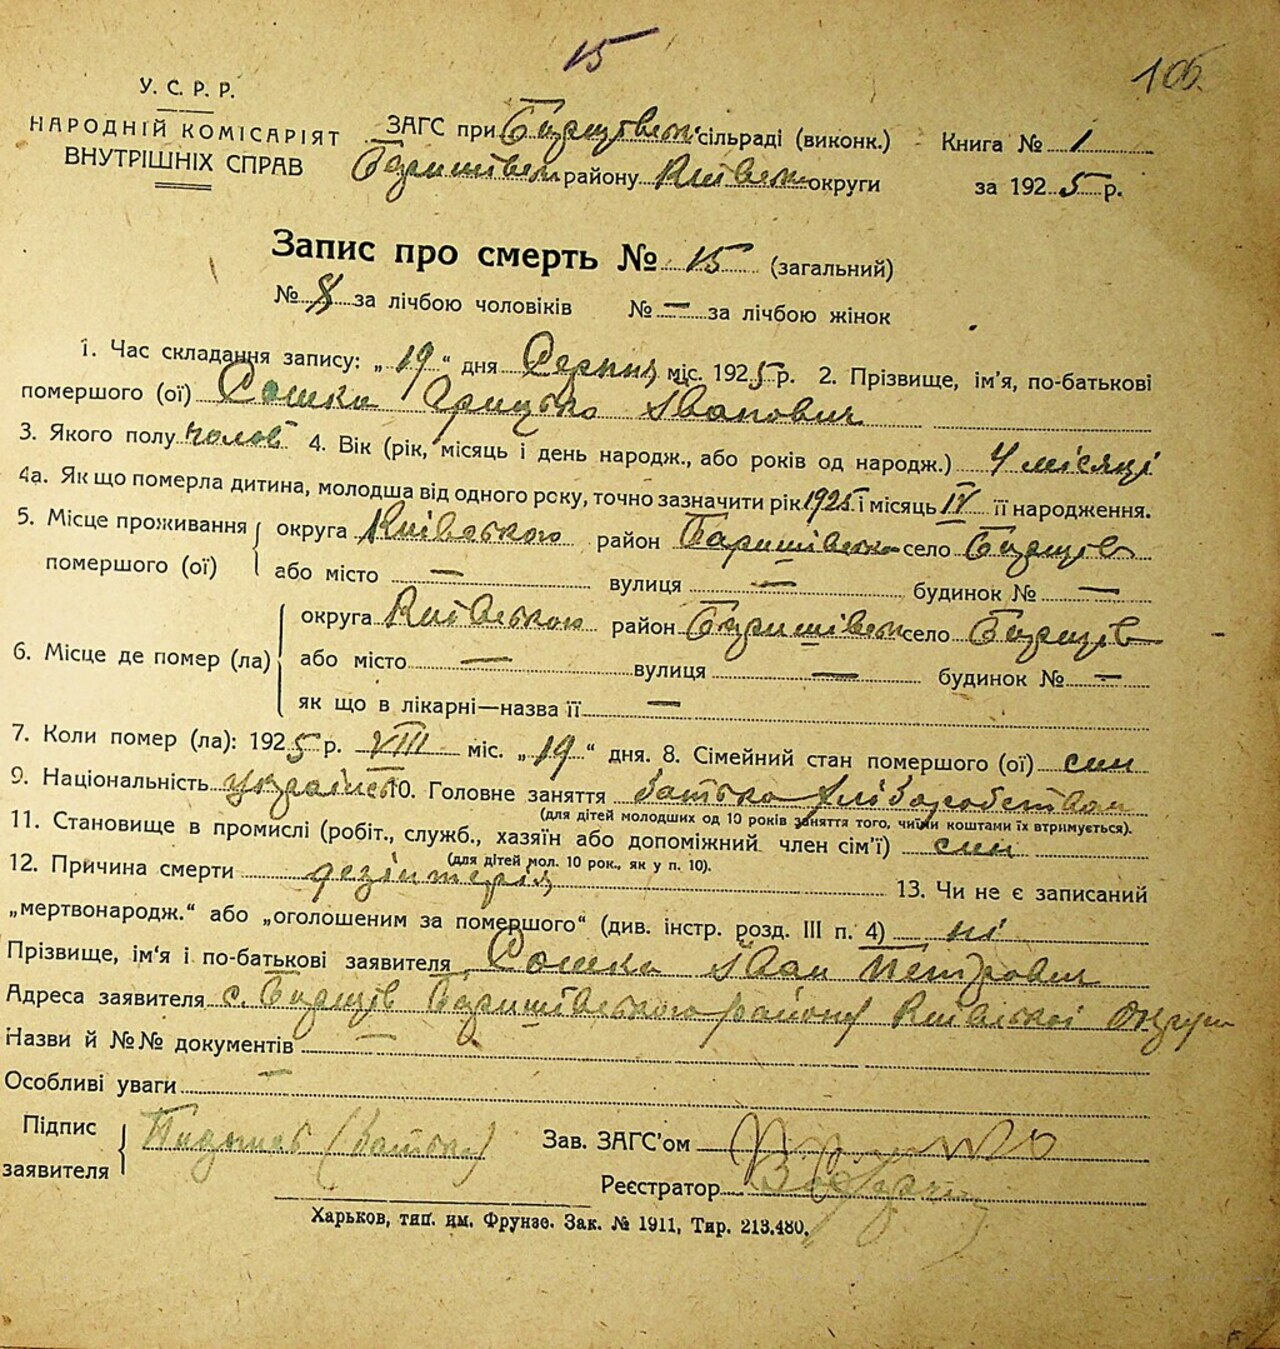 15
105.
У. С. Р. Р.
НАРОДНІЙ КОМІСАРІЯТ
ВНУТРІШНІХ СПРАВ
ЗАГС при сільраді (виконк.)
Баришівськ району Київськ округи
Книга № 1
за 1925 р.
Запис про смерть № 15 (загальний)
№ 8 за лічбою чоловіків № — за лічбою жінок
1. Час складання запису: „19“ дня Серпня міс. 1925 р. 2. Прізвище, ім’я, по-батькові
помершого (ої) Сошка Грицько Іванович
3. Якого полу чолов 4. Вік (рік, місяць і день народж., або років од народж.) 4 місяці
4а. Як що померла дитина, молодша від одного року, точно зазначити рік 1925 і місяць IV її народження.
5. Місце проживання помершого (ої)
округа Київського район Баришівськ село
або місто — вулиця — будинок № —
6. Місце де помер (ла)
округа Київського район Баришівськ село
або місто — вулиця — будинок № —
як що в лікарні—назва її —
7. Коли помер (ла): 1925 р. VIII міс. „19“ дня. 8. Сімейний стан помершого (ої) син
9. Національність 10. Головне заняття батька хліборобством
(для дітей молодших од 10 років заняття того, чиїми коштами їх втримується).
11. Становище в промислі (робіт., служб., хазяїн або допоміжний член сім’ї) син
(для дітей мол. 10 рок., як у п. 10).
12. Причина смерти дезінтерія 13. Чи не є записаний
„мертвонародж.“ або „оголошеним за помершого“ (див. інстр. розд. III п. 4) ні
Прізвище, ім’я і по-батькові заявителя Сошка Іван Петрович
Адреса заявителя с. Баришівського району Київської Округи
Назви й №№ документів —
Особливі уваги —
Підпис заявителя (батько)
Зав. ЗАГС’ом
Реєстратор
Харьков, тип. им. Фрунзе. Зак. № 1911, Тир. 213.480.